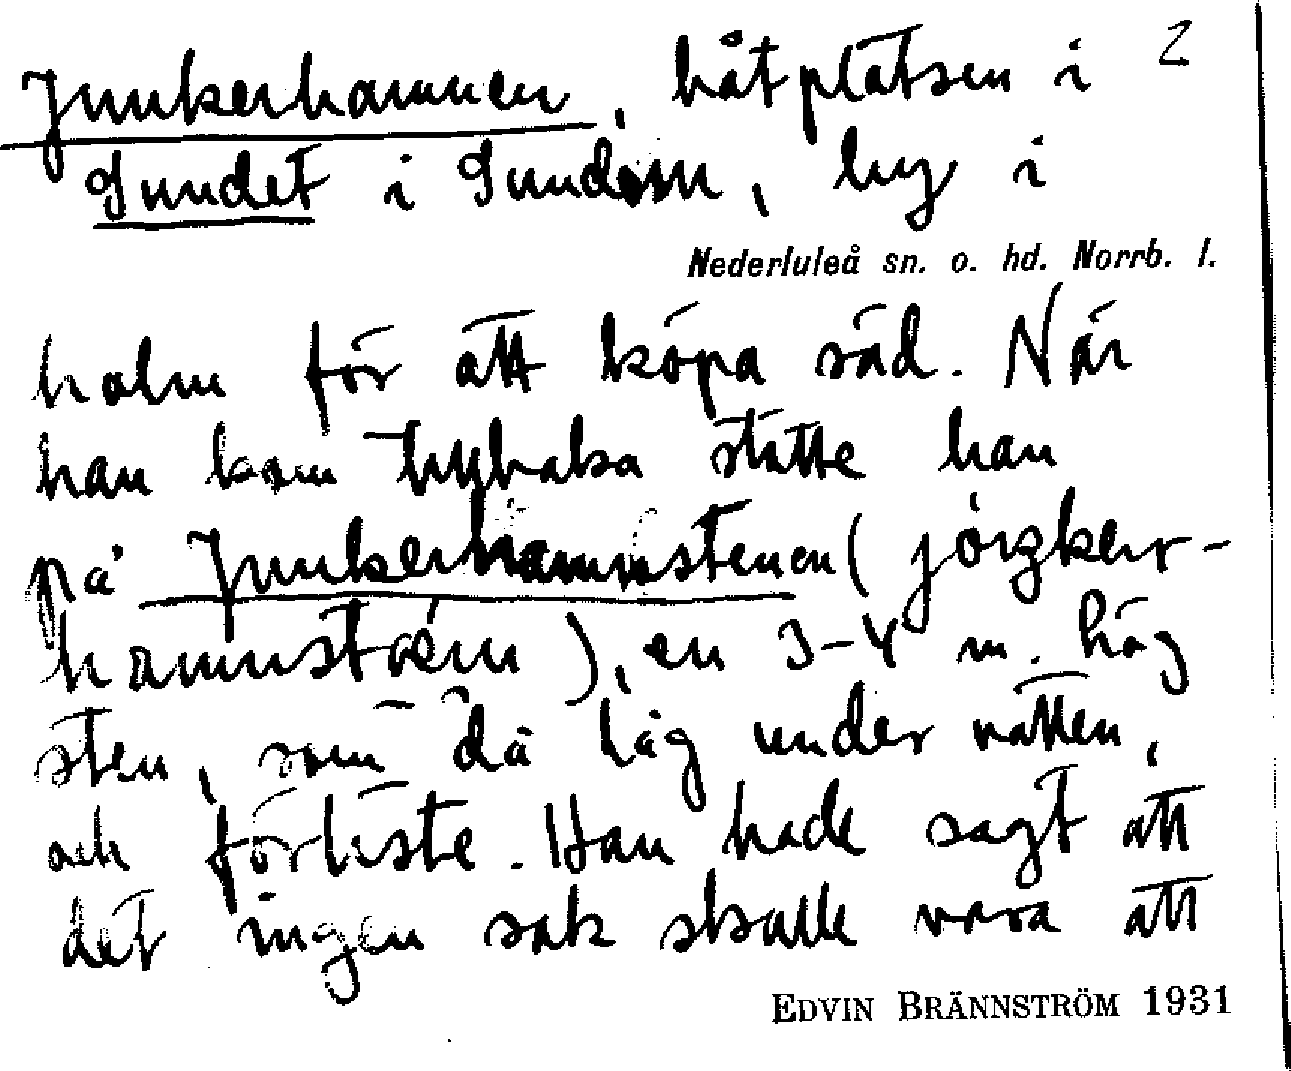 Junkerhamnen, båtplatsen i 2
Sundet i Sundom, by i
Nederluleå sn. o. hd. Norrb. l.
holm för att köpa säd. När
han kom tillbaka stötte han
på Junkerhamnstenen (
hamnst ), en 3-4 m. hög
sten, som då låg under vatten,
och förliste. Han hade sagt att
det ingen sak skulle vara att
EDVIN BRÄNNSTRÖM 1931